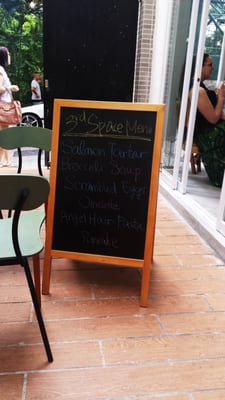 3rd Space Menu
Salmon Tartar
Broccoli Soup
Scrambled Eggs
Omelette
Angel Hair Pasta
Pancake